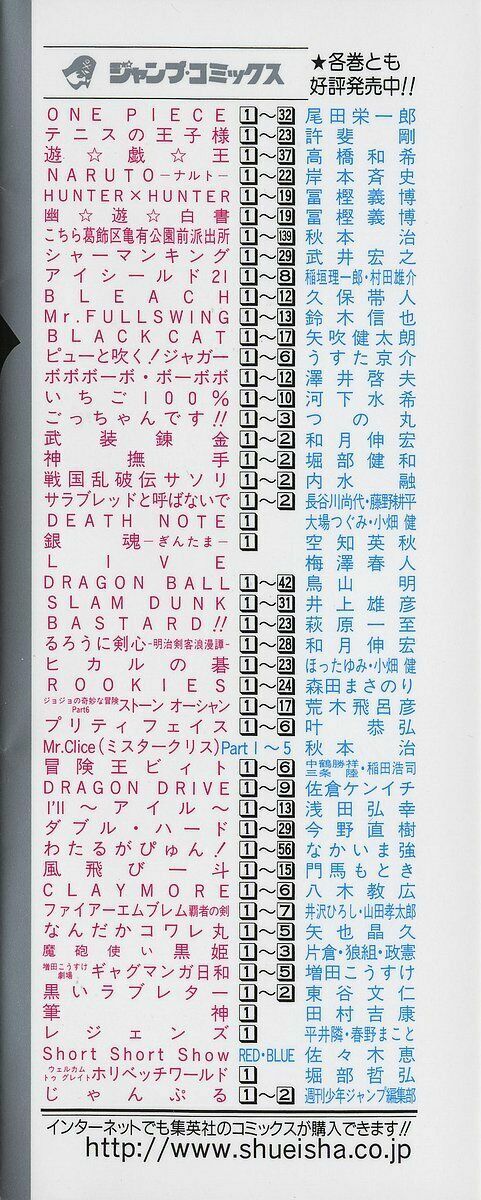 ジャンプ・コミックス
★各巻とも
好評発売中!!
ONE PIECE 1〜32 尾田栄一郎
テニスの王子様 1〜23 許斐 剛
遊☆戯☆王 1〜37 高橋和希
NARUTO―ナルト― 1〜22 岸本斉史
HUNTER×HUNTER 1〜19 冨樫義博
幽☆遊☆白書 1〜19 冨樫義博
こちら葛飾区亀有公園前派出所 1〜139 秋本 治
シャーマンキング 1〜29 武井宏之
アイシールド21 1〜8 稲垣理一郎・村田雄介
BLEACH 1〜12 久保帯人
Mr.FULLSWING 1〜13 鈴木信也
BLACK CAT 1〜17 矢吹健太朗
ピューと吹く!ジャガー 1〜6 うすた京介
ボボボーボ・ボーボボ 1〜12 澤井啓夫
いちご100% 1〜10 河下水希
ごっちゃんです!! 1〜3 つの丸
武装錬金 1〜2 和月伸宏
神撫手 1〜2 堀部健和
戦国乱破伝サソリ 1〜2 内水 融
サラブレッドと呼ばないで 1〜2 長谷川尚代・藤野耕平
DEATH NOTE 1 大場つぐみ・小畑 健
銀魂―ぎんたま― 1 空知英秋
LIVE 梅澤春人
DRAGON BALL 1〜42 鳥山 明
SLAM DUNK 1〜31 井上雄彦
BASTARD!! 1〜23 萩原一至
るろうに剣心-明治剣客浪漫譚- 1〜28 和月伸宏
ヒカルの碁 1〜23 ほったゆみ・小畑 健
ROOKIES 1〜24 森田まさのり
ジョジョの奇妙な冒険 Part6 ストーン オーシャン 1〜17 荒木飛呂彦
プリティフェイス 1〜6 叶 恭弘
Mr.Clice(ミスタークリス) Part 1〜5 秋本 治
冒険王ビィト 1〜6 三条 陸・稲田浩司
DRAGON DRIVE 1〜9 佐倉ケンイチ
I'll〜アイル〜 1〜13 浅田弘幸
ダブル・ハード 1〜29 今野直樹
わたるがぴゅん! 1〜56 なかいま強
風飛び一斗 1〜15 門馬もとき
CLAYMORE 1〜6 八木教広
ファイアーエムブレム覇者の剣 1〜7 井沢ひろし・山田孝太郎
なんだかコワレ丸 1〜5 矢也晶久
魔砲使い黒姫 1〜3 片倉・狼組・政憲
増田こうすけ劇場 ギャグマンガ日和 1〜5 増田こうすけ
黒いラブレター 1〜2 東谷文仁
筆神 1 田村吉康
レジェンズ 1 平井隣・春野まこと
Short Short Show RED・BLUE 佐々木恵
ウェルカム トゥ グレイト ホリベッチワールド 1 堀部哲弘
じゃんぷる 1〜2 週刊少年ジャンプ編集部
インターネットでも集英社のコミックスが購入できます!!
http://www.shueisha.co.jp